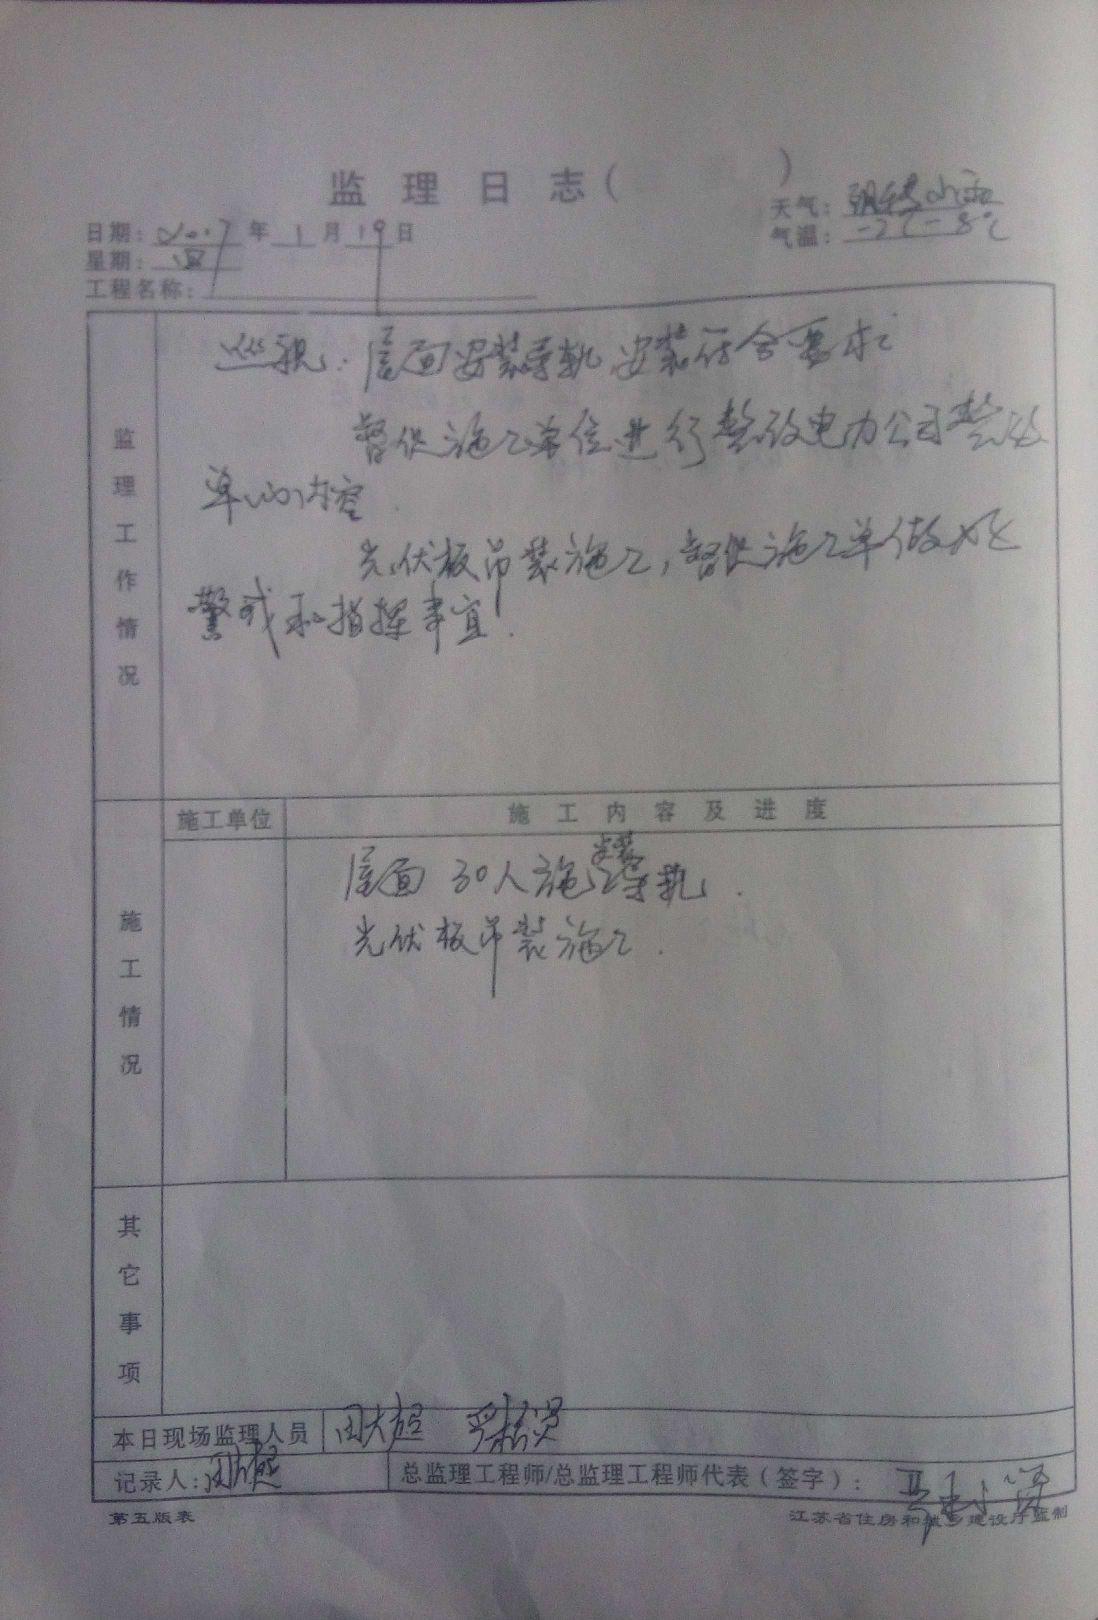 监理日志（ ）
天气：阴转小雨
日期：2017年1月19日
气温：-2℃-8℃
星期：四
工程名称：
监理工作情况
巡视：屋面安装导轨安装符合要求
督促施工单位进行整改电力公司整改
单的内容.
光伏板吊装施工，督促施工单做好
警戒和指挥事宜.
施工情况
施工单位 施工内容及进度
安装
屋面30人施工导轨.
光伏板吊装施工.
其它事项
本日现场监理人员
记录人：
总监理工程师/总监理工程师代表（签字）：
第五版表
江苏省住房和城乡建设厅监制